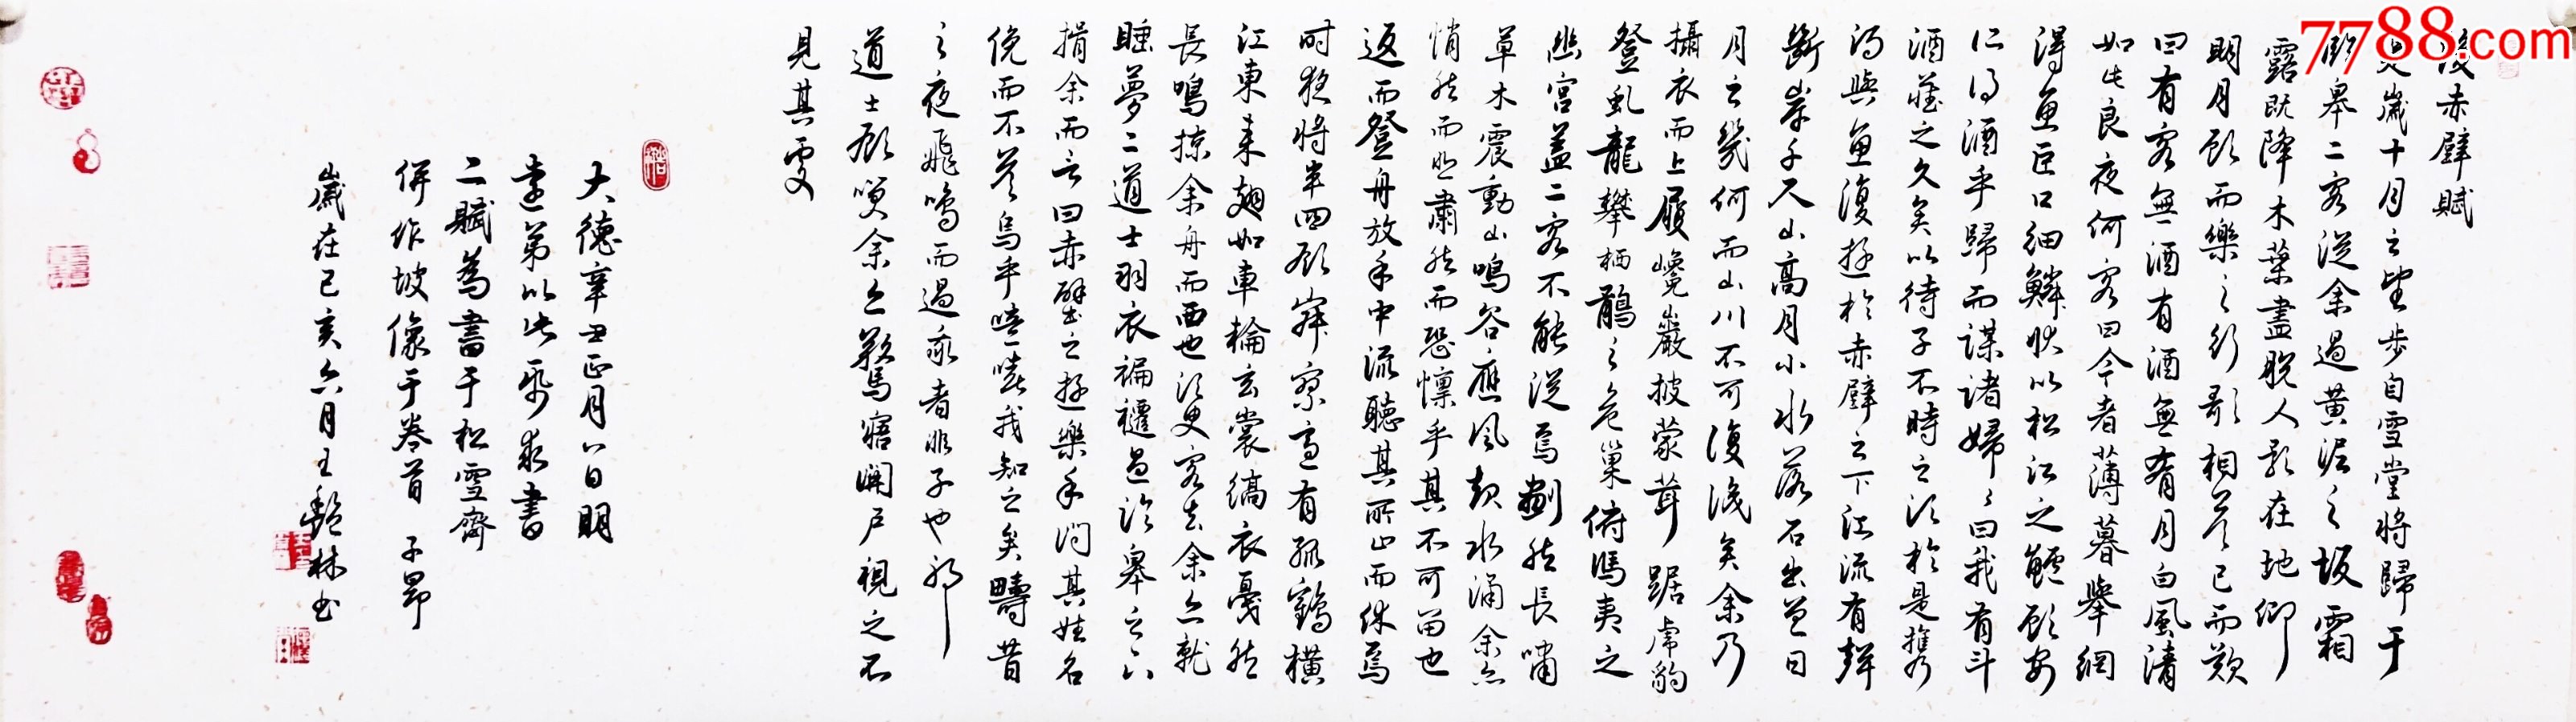 後赤壁賦
是歲十月之望步自雪堂將歸于
臨皋二客從余過黃泥之坂霜
露既降木葉盡脫人影在地仰
明月顧而樂之行歌相答已而歎
曰有客無酒有酒無肴月白風清
如此良夜何客曰今者薄暮舉網
得魚巨口細鱗狀以松江之鱸顧安
所得酒乎歸而謀諸婦々曰我有斗
酒藏之久矣以待子不時之須於是攜
酒與魚復遊於赤壁之下江流有聲
斷岸千尺山高月小水落石出曾日
月之幾何而山川不可復識矣余乃
攝衣而上履巉巖披蒙茸踞虎豹
登虬龍攀栖鶻之危巢俯馮夷之
幽宮蓋二客不能從焉劃然長嘯
草木震動山鳴谷應風起水涌余亦
悄然而悲肅然而恐懍乎其不可留也
返而登舟放乎中流聽其所止而休焉
時夜將半四顧寂寥適有孤鶴橫
江東來翅如車輪玄裳縞衣戛然
長鳴掠余舟而西也須臾客去余亦就
睡夢二道士羽衣褊褼過臨皋之下
揖余而言曰赤壁之遊樂乎問其姓名
俛而不答烏乎噫嘻我知之矣疇昔
之夜飛鳴而過我者非子也邪
道士顧笑余亦驚寤開戶視之不
見其處
大德辛丑正月八日明
遠弟以此紙求書
二賦為書于松雪齋
併作坡像于卷首 子昂
歲在己亥六月王艷林书
7788.com